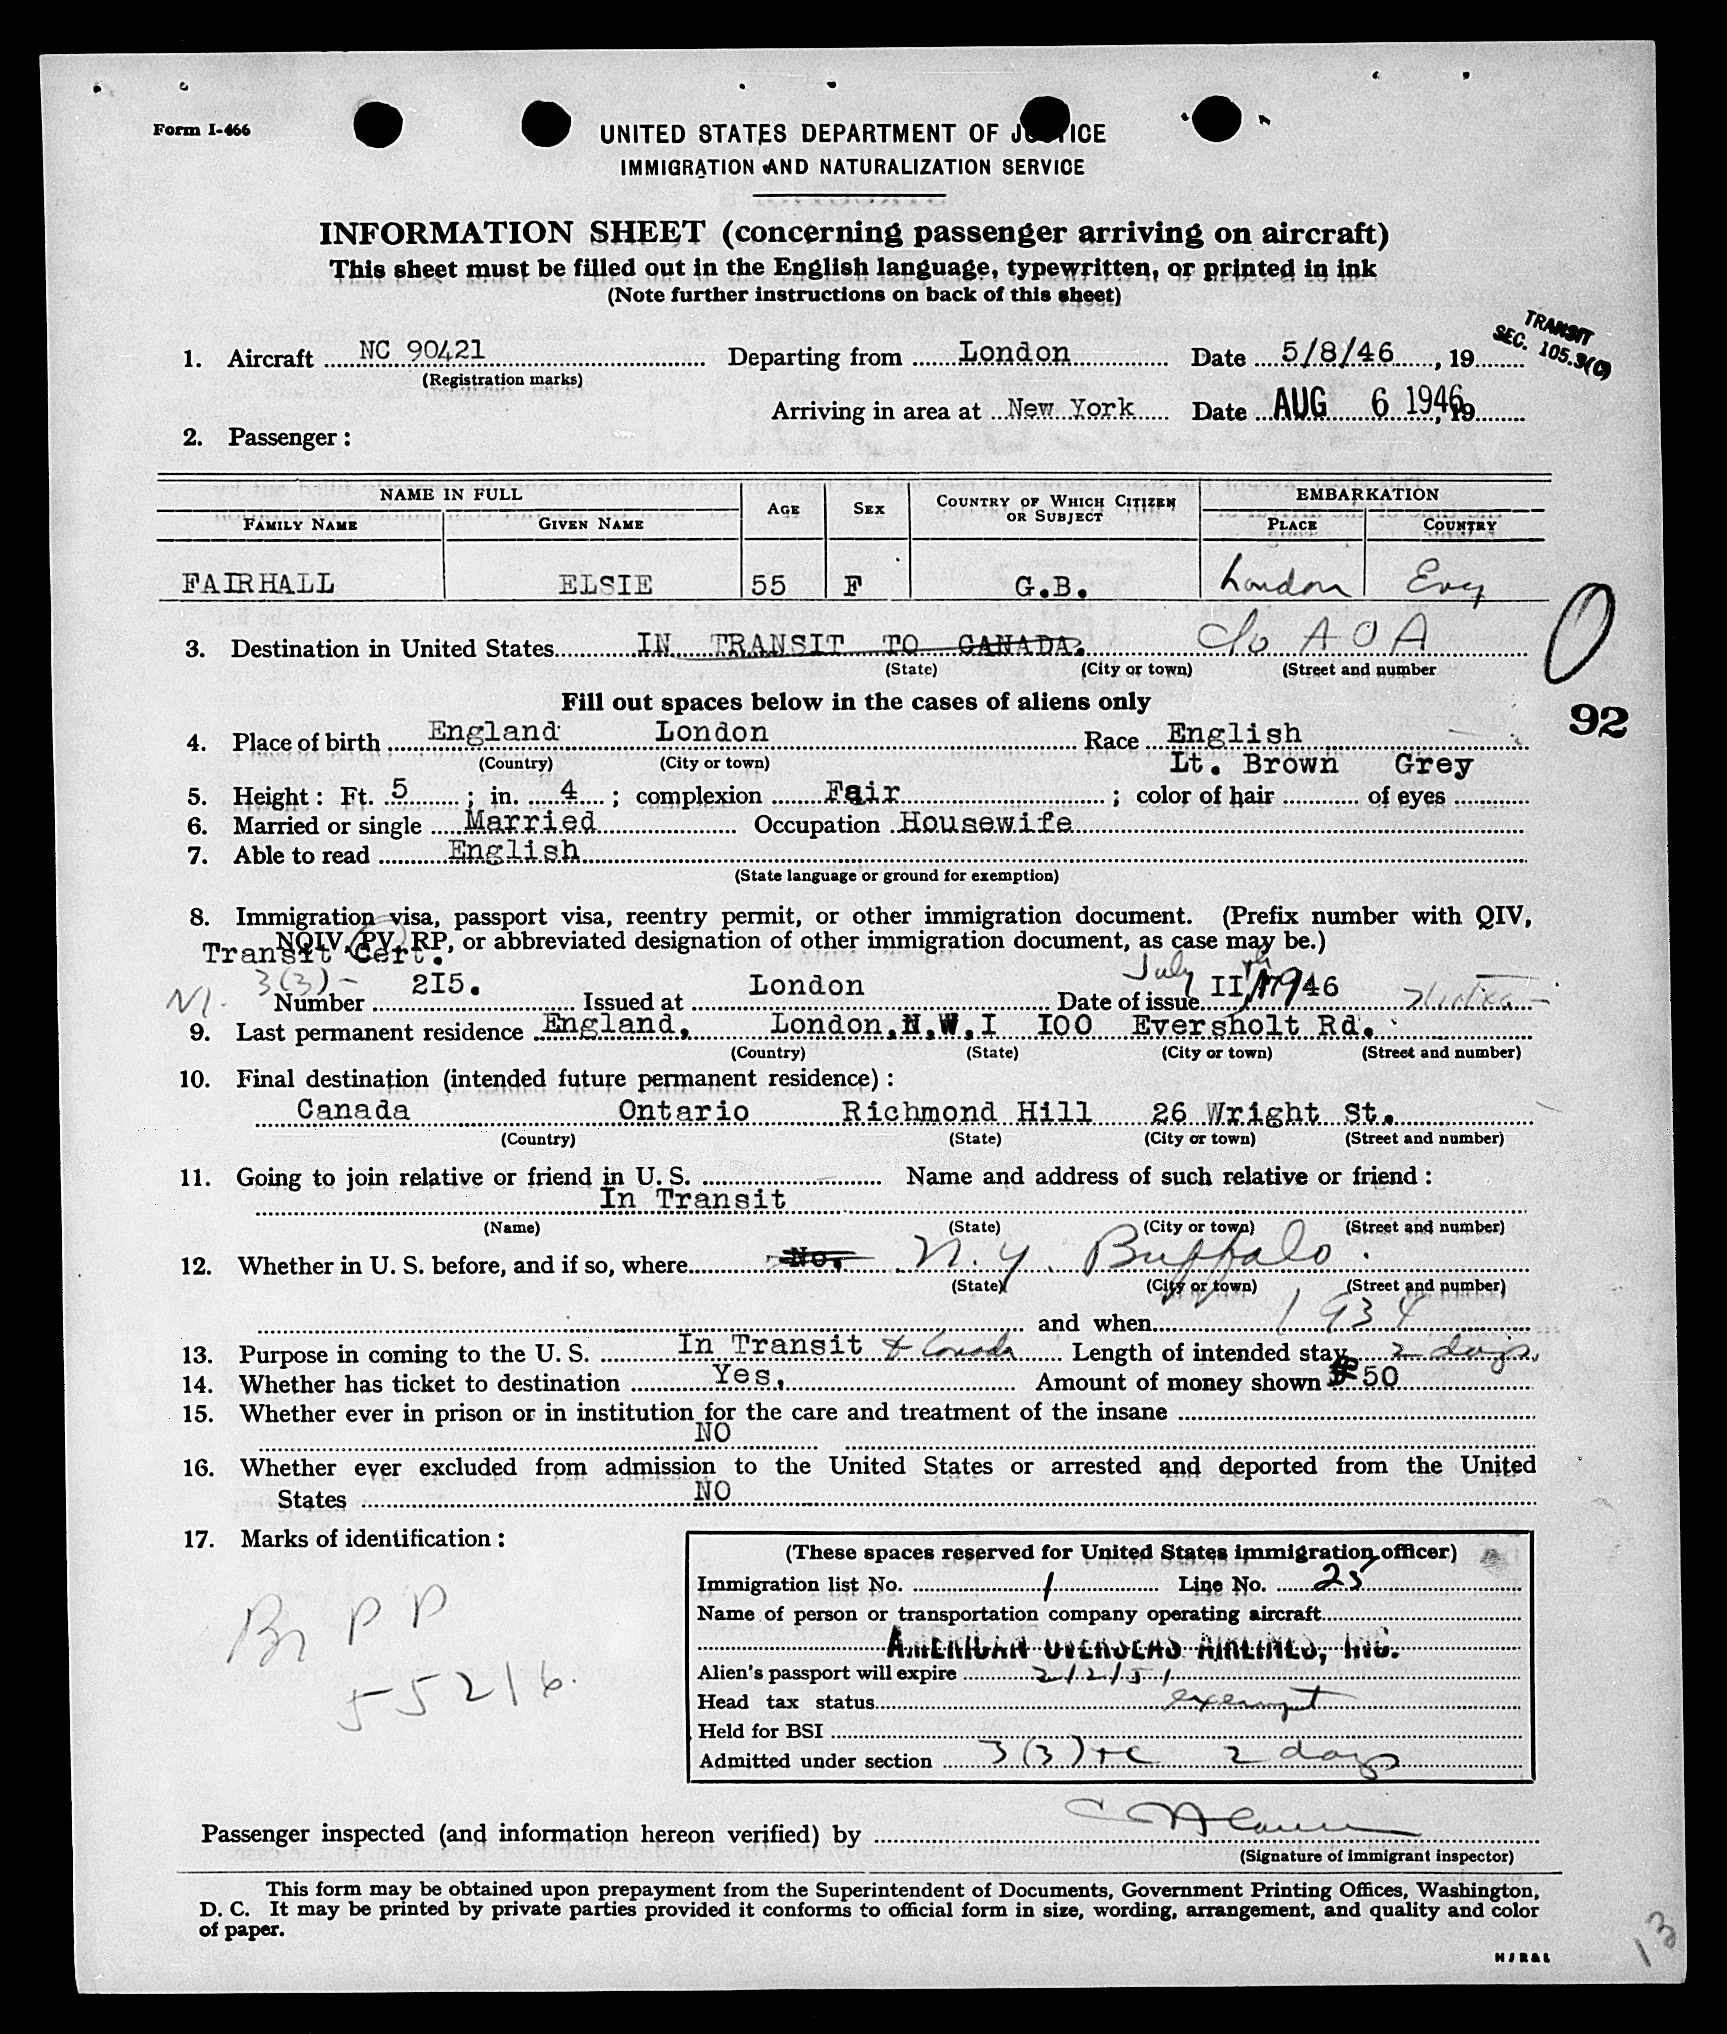 Form I-466
UNITED STATES DEPARTMENT OF JUSTICE
IMMIGRATION AND NATURALIZATION SERVICE
INFORMATION SHEET (concerning passenger arriving on aircraft)
This sheet must be filled out in the English language, typewritten, or printed in ink
(Note further instructions on back of this sheet)
TRANSIT
SEC. 105.3(C)
1. Aircraft NC 90421 Departing from London Date 5/8/46, 19
(Registration marks)
Arriving in area at New York Date AUG 6 1946, 19
2. Passenger:
NAME IN FULL EMBARKATION
FAMILY NAME GIVEN NAME AGE SEX COUNTRY OF WHICH CITIZEN OR SUBJECT PLACE COUNTRY
FAIRHALL ELSIE 55 F G.B. London Eng
3. Destination in United States IN TRANSIT TO CANADA. C/o A O A
(State) (City or town) (Street and number
0
92
Fill out spaces below in the cases of aliens only
4. Place of birth England London Race English
(Country) (City or town)
Lt. Brown Grey
5. Height: Ft. 5; in. 4; complexion Fair; color of hair of eyes
6. Married or single Married Occupation Housewife
7. Able to read English
(State language or ground for exemption)
8. Immigration visa, passport visa, reentry permit, or other immigration document. (Prefix number with QIV,
NQIV, PV, RP, or abbreviated designation of other immigration document, as case may be.)
Transit Cert.
3(3)- 215. London July IIth 1946
Number Issued at Date of issue
9. Last permanent residence England, London, N.W.I I00 Eversholt Rd.
(Country) (State) (City or town) (Street and number)
10. Final destination (intended future permanent residence):
Canada Ontario Richmond Hill 26 Wright St.
(Country) (State) (City or town) (Street and number)
11. Going to join relative or friend in U. S. Name and address of such relative or friend:
In Transit
(Name) (State) (City or town) (Street and number)
12. Whether in U. S. before, and if so, where No. N.Y. Buffalo.
(State) (City or town) (Street and number)
and when 1934
13. Purpose in coming to the U. S. In Transit to Canada Length of intended stay 2 days.
14. Whether has ticket to destination Yes, Amount of money shown 50
15. Whether ever in prison or in institution for the care and treatment of the insane
NO
16. Whether ever excluded from admission to the United States or arrested and deported from the United
States NO
17. Marks of identification:
Br P P
55216.
(These spaces reserved for United States immigration officer)
Immigration list No. 1 Line No. 25
Name of person or transportation company operating aircraft
AMERICAN OVERSEAS AIRLINES, INC.
Alien's passport will expire 2/2/51
Head tax status exempt
Held for BSI
Admitted under section 3(3)tc 2 days
Passenger inspected (and information hereon verified) by
(Signature of immigrant inspector)
This form may be obtained upon prepayment from the Superintendent of Documents, Government Printing Offices, Washington,
D. C. It may be printed by private parties provided it conforms to official form in size, wording, arrangement, and quality and color
of paper.
13